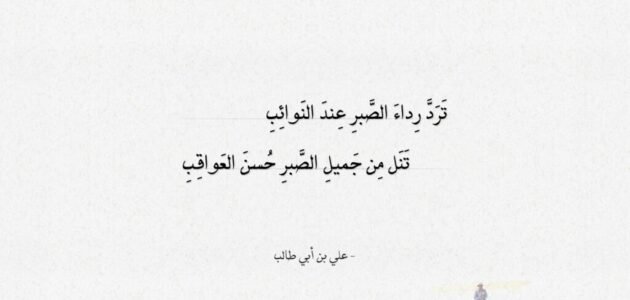 تَرَدَّ رِداءَ الصَّبرِ عِندَ النَوائِبِ
تَنَل مِن جَميلِ الصَّبرِ حُسنَ العَواقِبِ
- علي بن أبي طالب